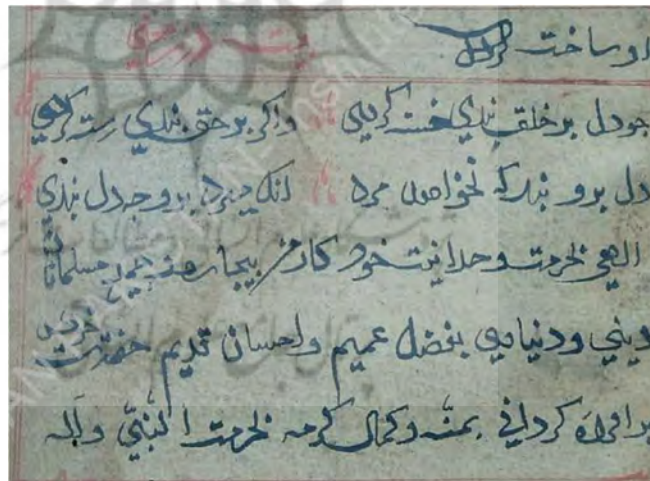 او ساخت
بیت در معنی
جو دل بر خلق بندی خسته کردی واکر بر حق بندی رسته کردی
دل برو بند که نخواهد مرد انک میرد برو جه دل بندی
الهی بحرمت وحدانیت خود کار من بیجاره و جمیع مسلمانان
دینی و دنیایی بفضل عمیم و احسان قدیم حضرت خودت
بر افراه کردانی بمنه و کمال کرمه بحرمت النبی و آله